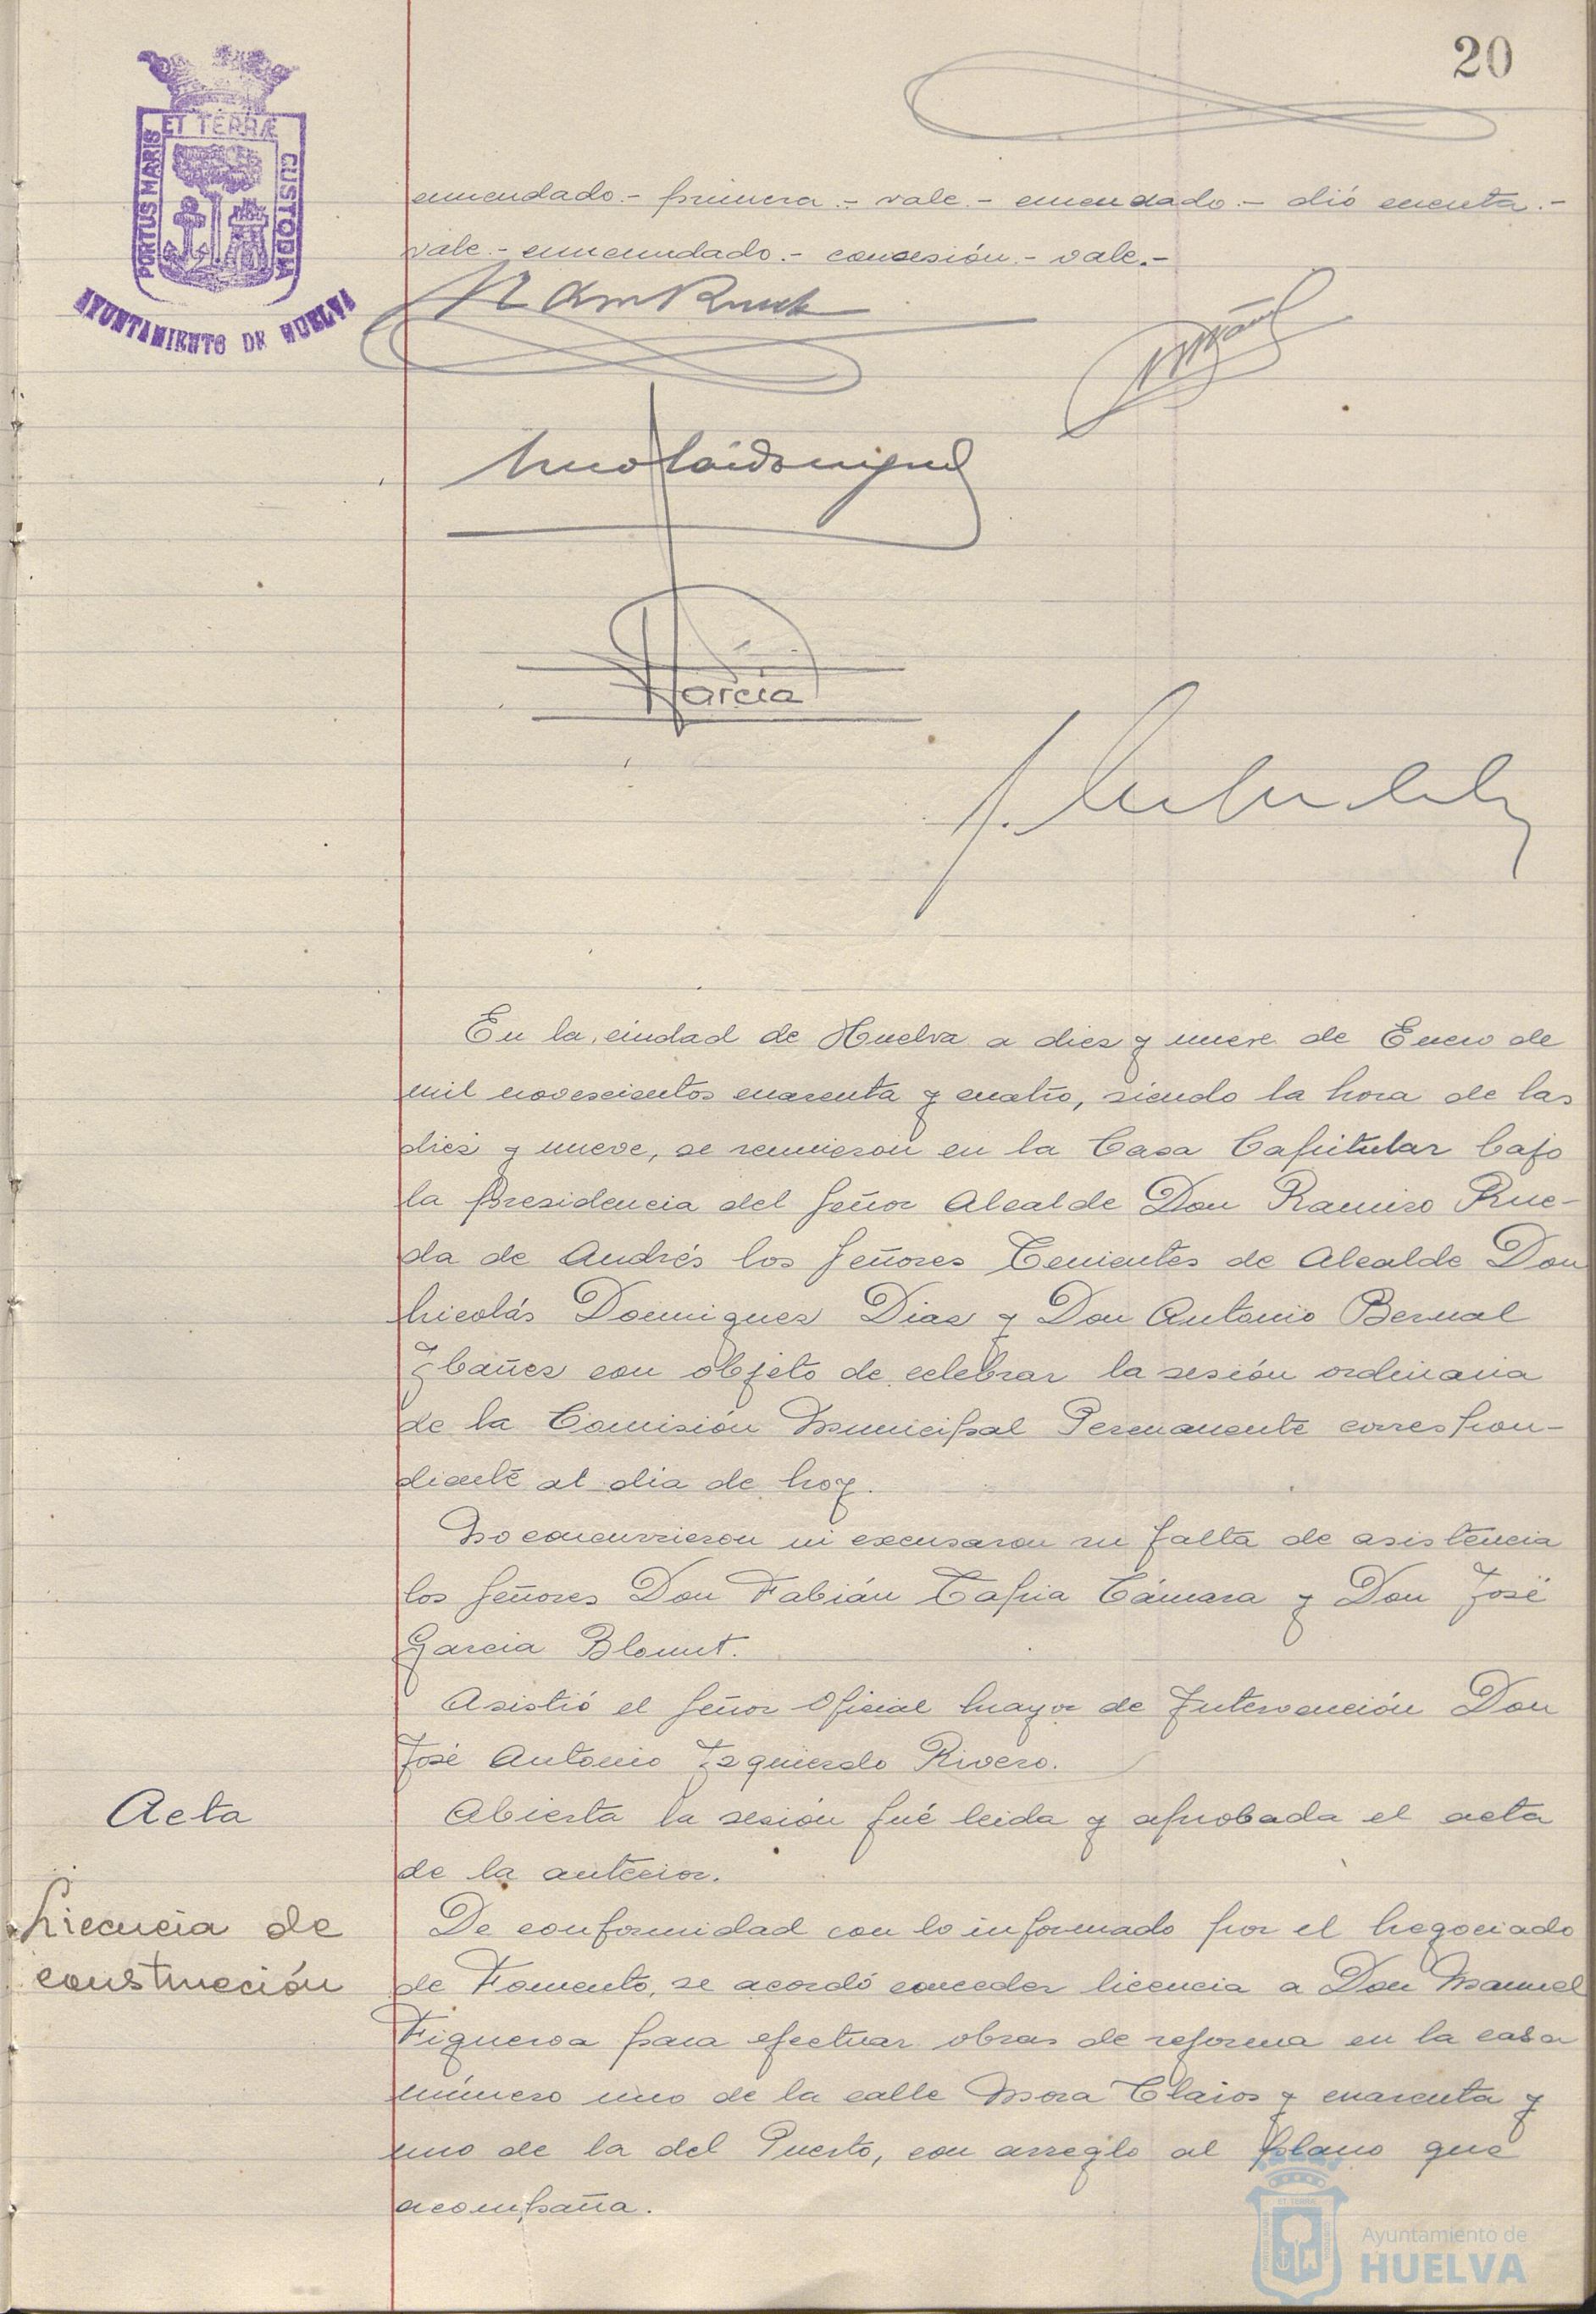 20
ET TERRÆ
PORTUS MARIS
CUSTODIA
AYUNTAMIENTO DE HUELVA
enmendado.- primera.- vale.- enmendado.- dió cuenta.-
vale.- enmendado.- concesión.- vale.-
García
En la ciudad de Huelva a diez y nueve de Enero de
mil novescientos cuarenta y cuatro, siendo la hora de las
diez y nueve, se reunieron en la Casa Capitular bajo
la Presidencia del Señor Alcalde Don Ramiro Rue-
da de Andrés los Señores Tenientes de Alcalde Don
Nicolás Dominguez Diaz y Don Antonio Bernal
Ybañez con objeto de celebrar la sesión ordinaria
de la Comisión Municipal Permanente correspon-
diente al dia de hoy.
No concurrieron ni excusaron su falta de asistencia
los Señores Don Fabián Tapia Cámara y Don José
Garcia Blomet.
Asistió el Señor Oficial Mayor de Intervención Don
José Antonio Izquierdo Rivero.
Acta
Abierta la sesión fué leida y aprobada el acta
de la anterior.
Licencia de
construcción
De conformidad con lo informado por el Negociado
de Fomento, se acordó conceder licencia a Don Manuel
Figueroa para efectuar obras de reforma en la casa
número uno de la calle Mora Claros y cuarenta y
uno de la del Puerto, con arreglo al plano que
acompaña.
Ayuntamiento de
HUELVA